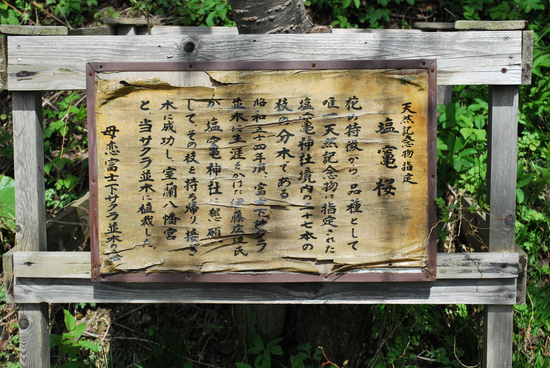 天然記念物指定
塩竈桜
花の特徴から、品種として
唯一天然記念物に指定された
塩竈神社境内の二十七本の
枝の分木である
昭和三四年頃、富士下サクラ
並木に生涯をかけた伊藤広達氏
が、塩竈神社に懇願
して、その枝を持ち帰り、接ぎ
木に成功し、室蘭八幡宮
と当サクラ並木に植栽した
母恋富士下サクラ並木の会